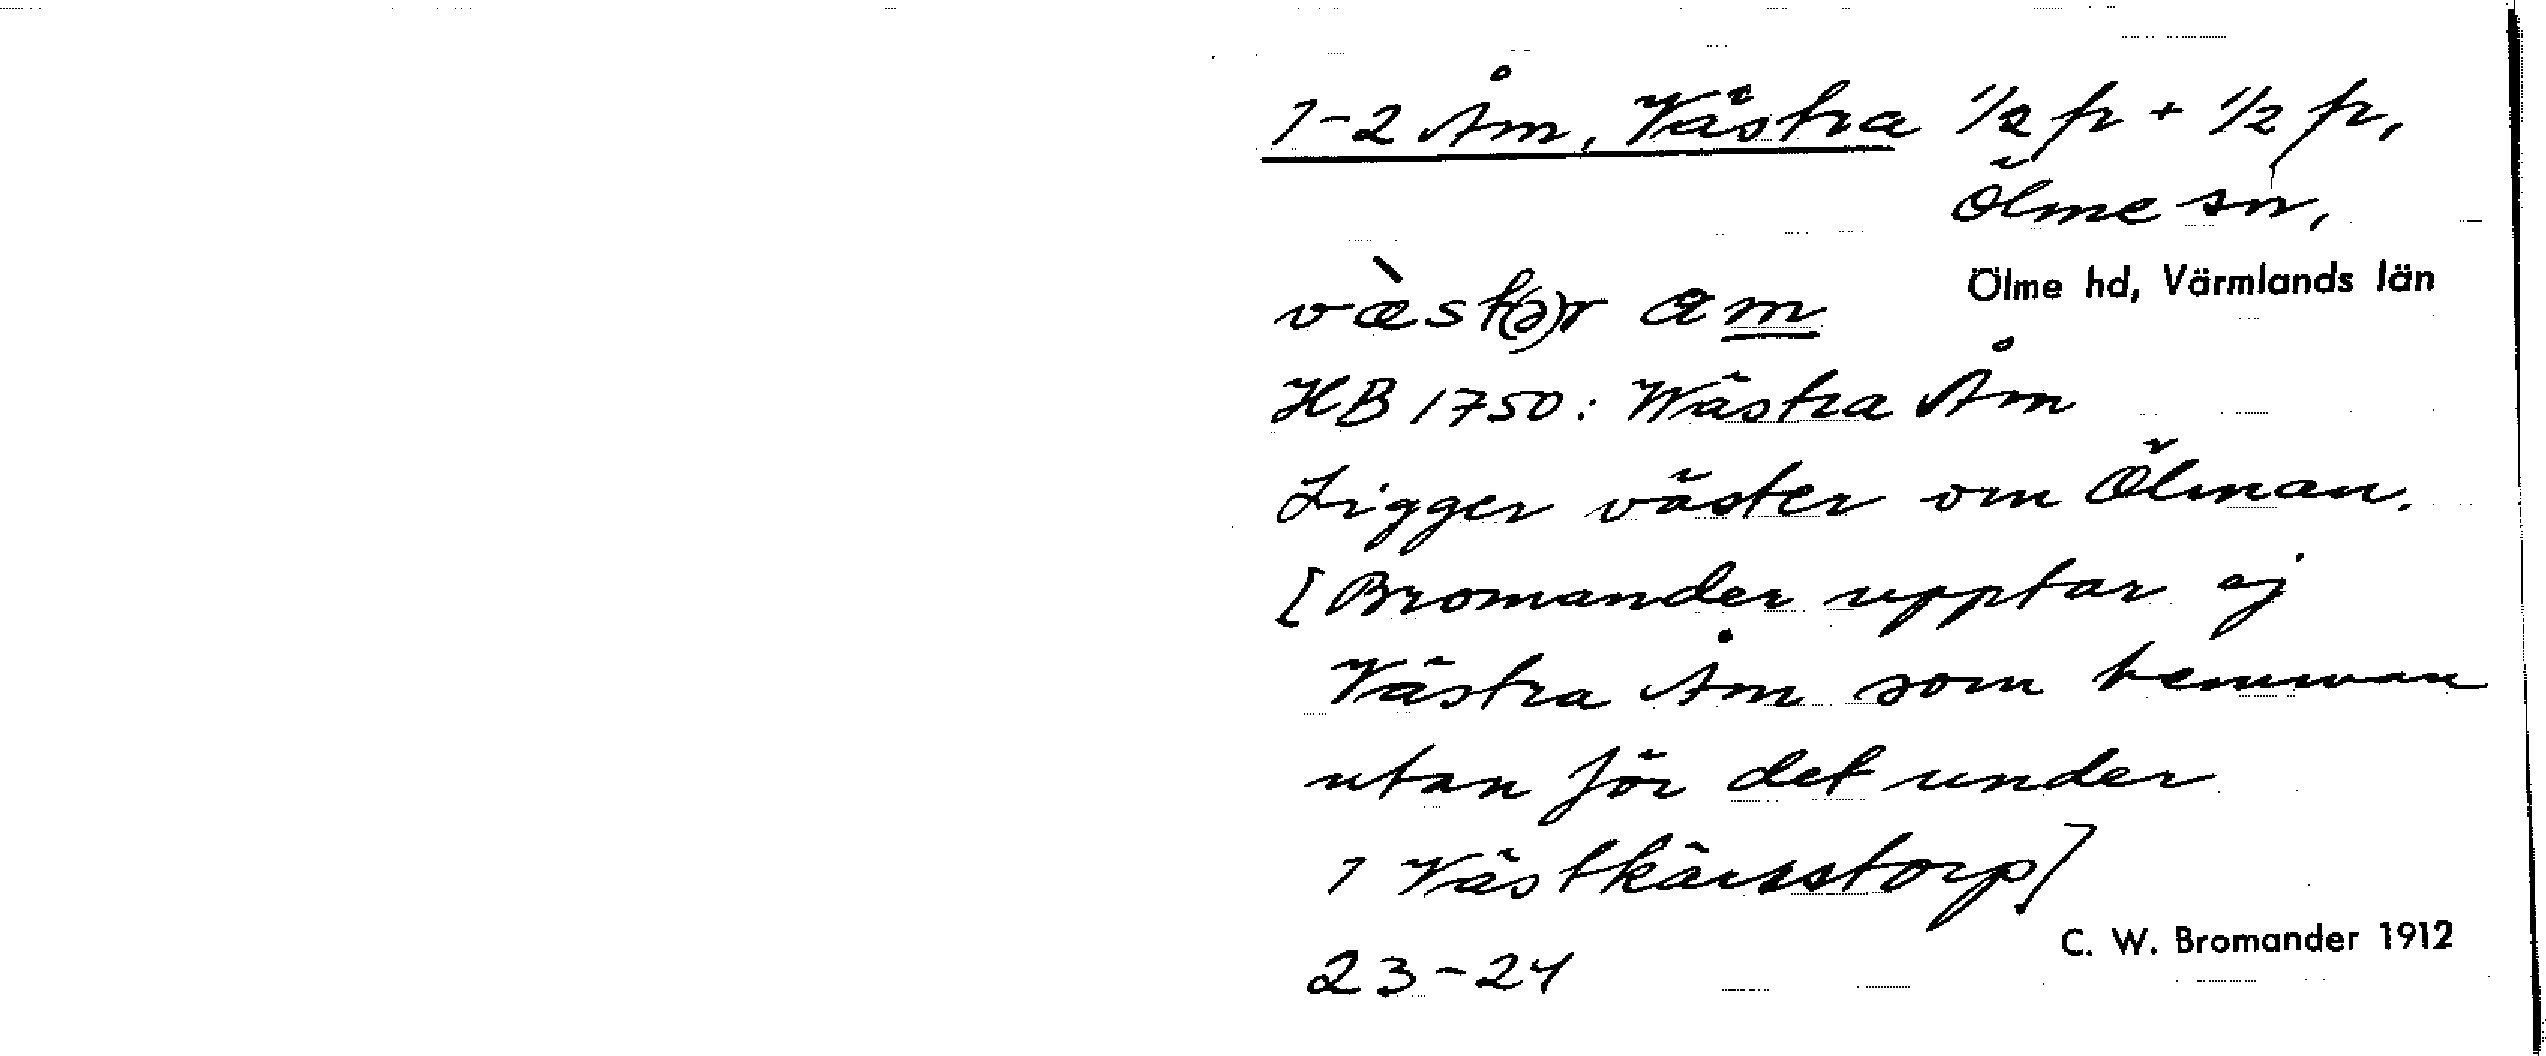 1-2 Åm, Västra 1/2 fr + 1/2 fr,
Ölme sn,
Ölme hd, Värmlands län
væ̀st(ə)r am
HB 1750: Wästra Åm
Ligger väster om Ölman.
[Bromander upptar ej
Västra Åm som hemman
utan för det under
1 Västkärsstorp]
C. W. Bromander 1912
23-24